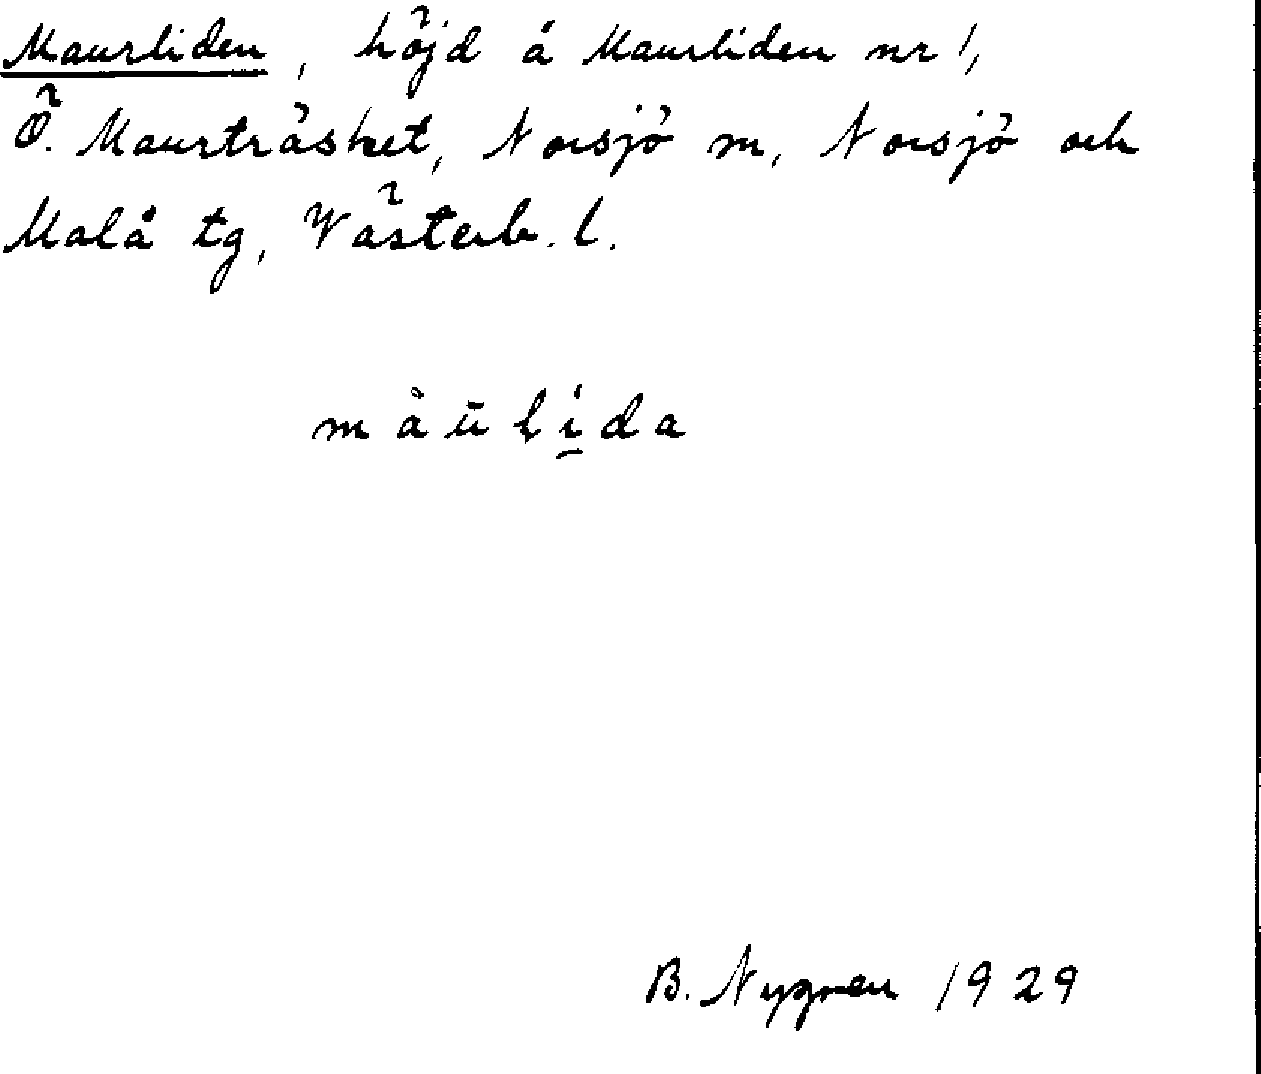 Maurliden, höjd å Maurliden nr 1,
Ö. Maurträsket, Norsjö sn, Norsjö och
Malå tg, Västerb. l.
måu̅lida
B. Nygren 1929